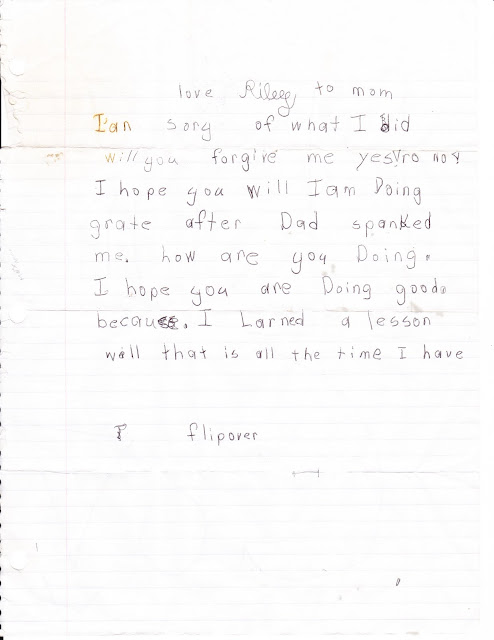 love Riley to mom
I'an sorry of what I did
will you forgive me yes/ro no?
I hope you will I am Doing
grate after Dad spanked
me. how are you Doing.
I hope you are Doing good.
because. I Larned a lesson
will that is all the time I have
flipover